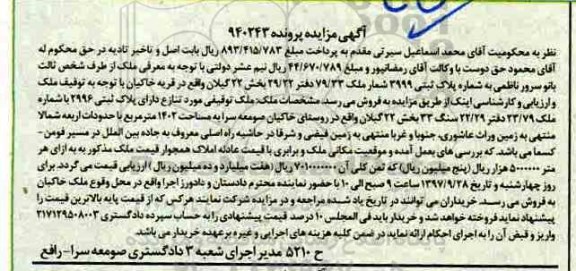 آگهی مزایده پرونده ۹۴۰۲۴۳
نظر به محکومیت آقای محمد اسماعیل سیرتی مقدم به پرداخت مبلغ ۸۹۳/۴۱۵/۷۸۳ ریال بابت اصل و تاخیر تادیه در حق محکوم له
آقای محمود حق دوست با وکالت آقای رمضانپور و مبلغ ۴۴/۶۷۰/۷۸۹ ریال نیم عشر دولتی با توجه به معرفی ملک از طرف شخص ثالث
بانو سرور ناظمی به شماره پلاک ثبتی ۳۹۹۹ شمار ملک ۷۹/۳۳ دفتر ۲۹/۲۲ بخش ۲۲ گیلان واقع در قریه خاکیان با توجه به توقیف ملک
و ارزیابی و کارشناسی اینک از طریق مزایده به فروش می رسد. مشخصات ملک: ملک توقیفی مورد تنازع دارای پلاک ثبتی ۲۹۹۶ با شماره
ملک ۲۳/۷۹ دفتر ۲۲/۲۹ سنگ ۳۳ بخش ۲۲ گیلان واقع در روستای خاکیان صومعه سرا به مساحت ۱۴۰۲ مترمربع با حدودات اربعه شمالا
منتهی به زمین وراث عاشوری، جنوبا و غربا منتهی به زمین فیضی و شرقا در حاشیه راه اصلی معروف به جاده بین الملل در مسیر فومن-
کسما می باشد. که بررسی های بعمل آمده و موقعیت مکانی ملک و برابری با قیمت عادله املاک همجوار قیمت ملک مذکور به به ازای هر
متر ۵۰۰۰۰۰۰ هزار ریال (پنج میلیون ریال) که ثمن کلی آن ۷۰۱۰۰۰۰۰۰۰ ریال (هفت میلیارد و ده میلیون ریال) ارزیابی قیمت می گردد. برای
روز چهارشنبه و تاریخ ۱۳۹۷/۹/۲۸ ساعت ۹ صبح الی ۱۰ با حضور نماینده محترم دادستان و دادورز اجرا واقع در محل وقوع ملک خاکیان
به فروش می رسد. خریداران می توانند در تاریخ یاد شده مراجعه و در مزایده شرکت نمایند هرکس که از قیمت پایه بالاترین قیمت را
پیشنهاد نماید فروخته خواهد شد و خریدار باید فی المجلس ۱۰ درصد قیمت پیشنهادی را به حساب سپرده دادگستری ۲۱۷۱۲۹۵۰۸۰۰۳
واریز و قبض آن را به اجرای احکام ارائه نماید در ضمن کلیه هزینه های اجرایی و غیره برعهده خریدار می باشد.
ح ۵۲۱۰ مدیر اجرای شعبه ۳ دادگستری صومعه سرا- رافع